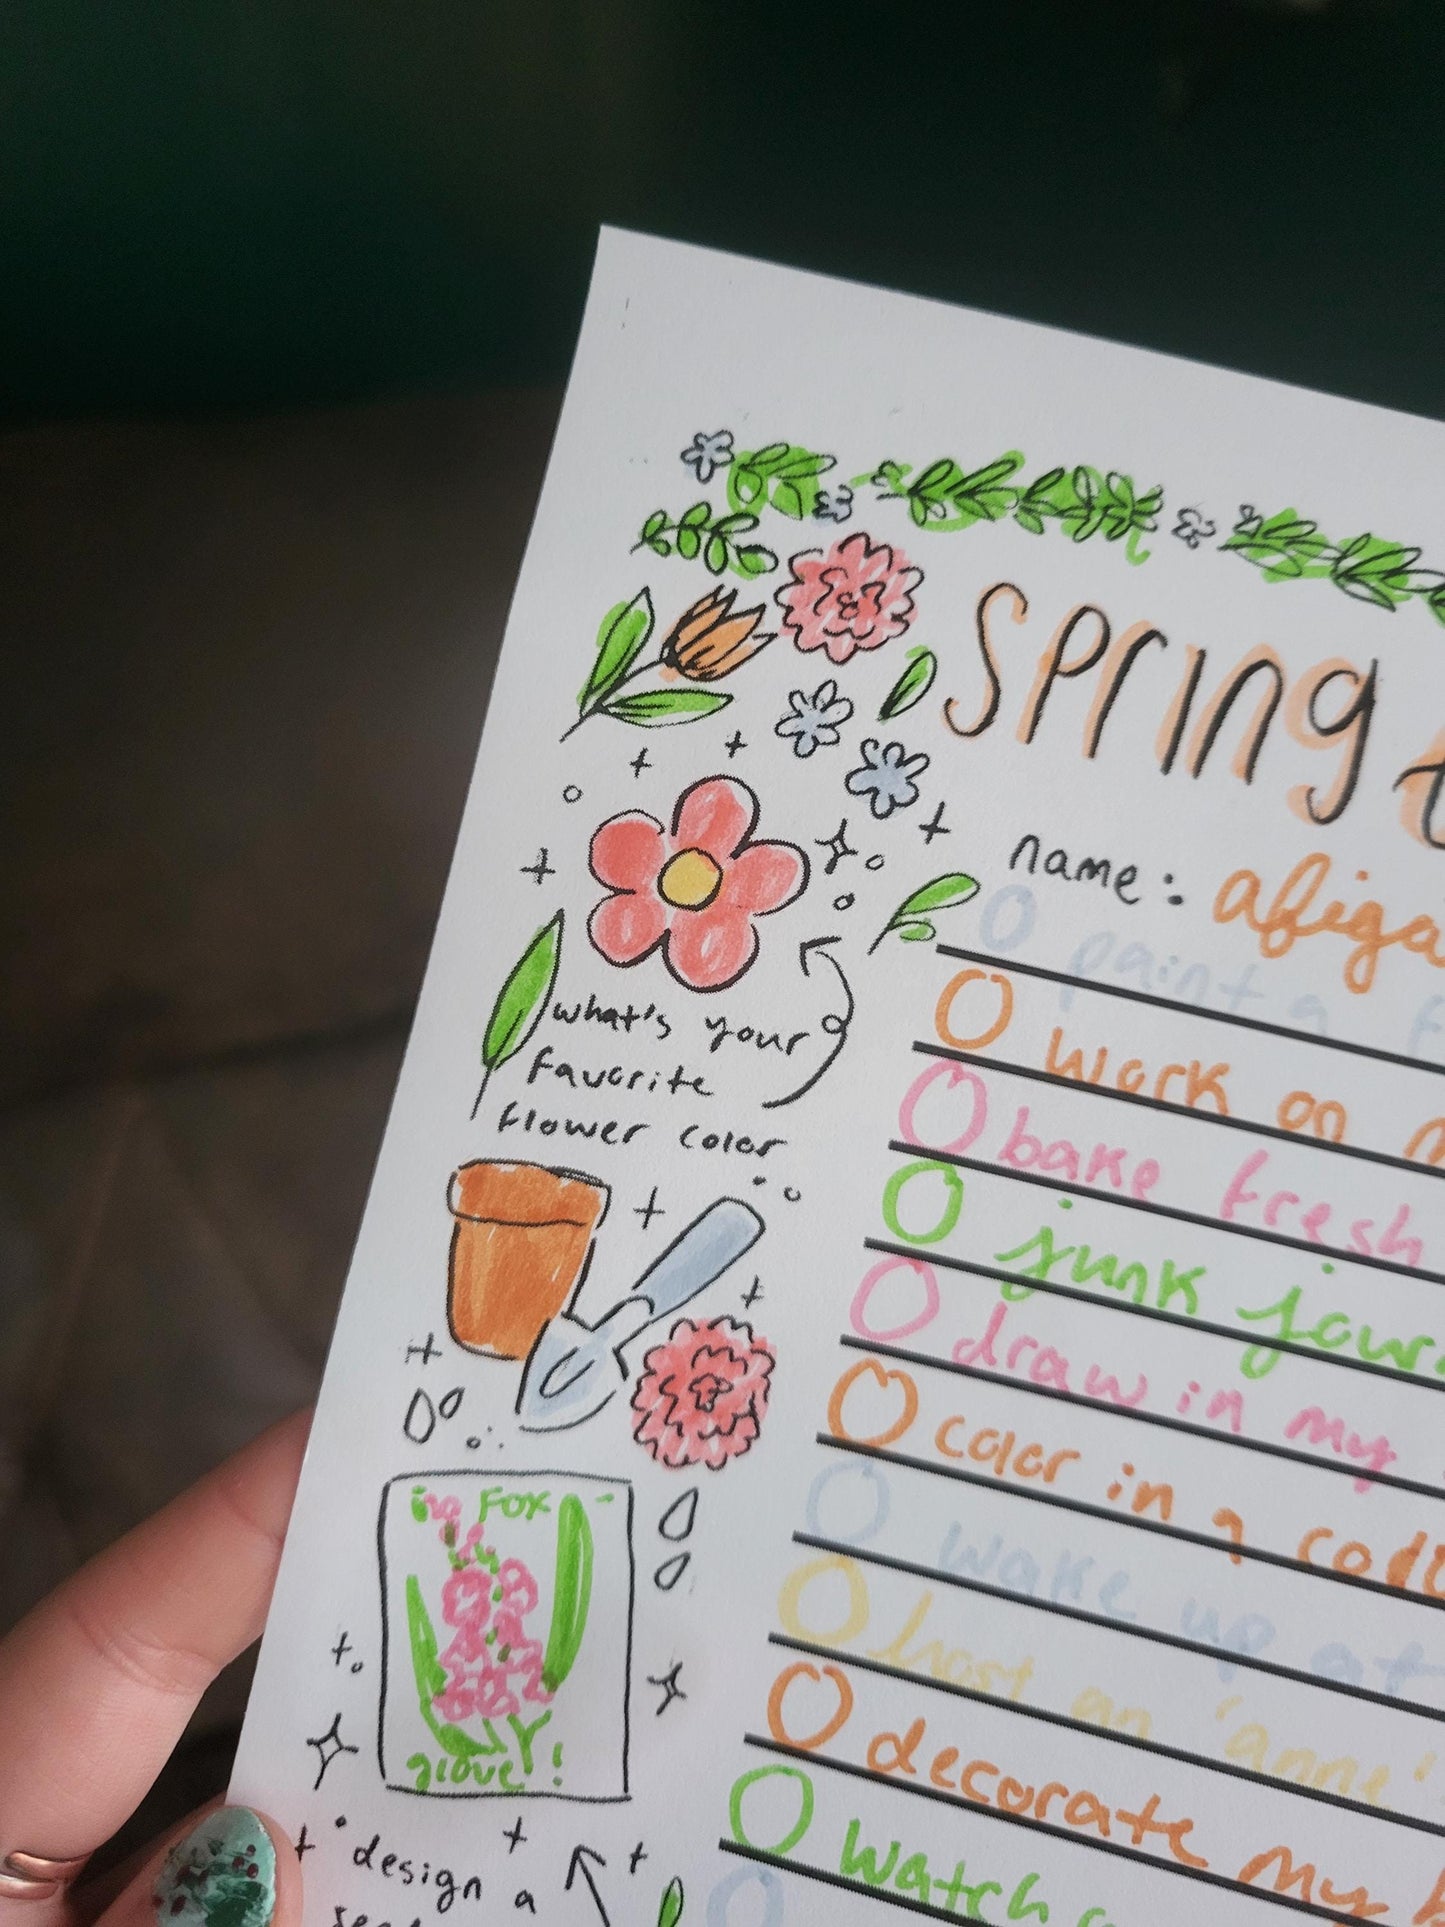 Spring
name: abiga
paint a f
work on
bake fresh
junk jour
draw in my
color in a
wake up at
host an 'anne'
decorate my
watch
what's your
favorite
flower color
FOX -
glove!
design a